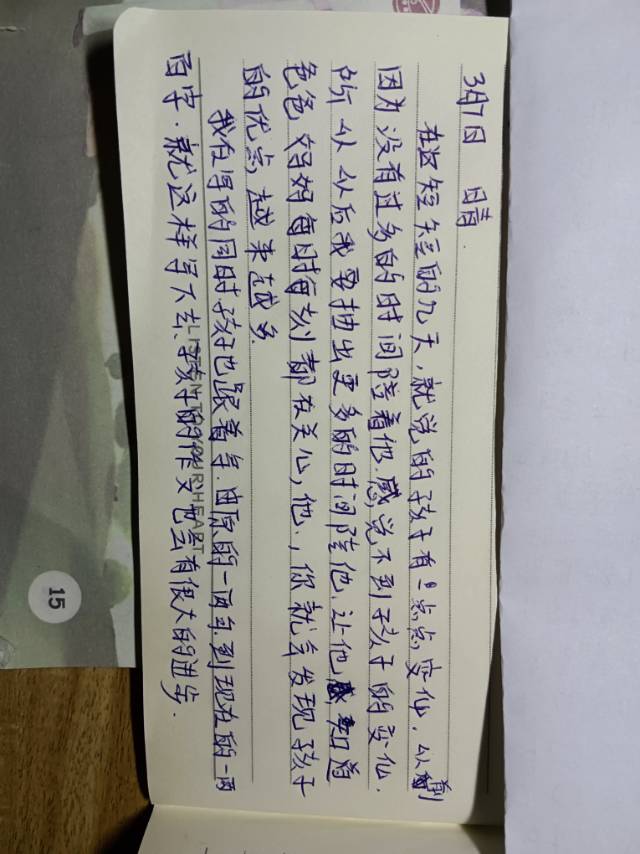 3月7日 晴.
在这短短的几天,就觉的孩子有一点点变化.以前
因为没有过多的时间陪着他.感觉不到孩子的变化.
所以以后我要抽出更多的时间陪他.让他感知道
爸爸妈妈每时每刻都在关心,他.,你就会发现孩子
的优点越来越多.
我在写的同时孩子也跟着写.由原的一两句到现在的一两
百字.就这样写下去.孩子的作文也会有很大的进步.
LISTEN TO YOUR HEART
15